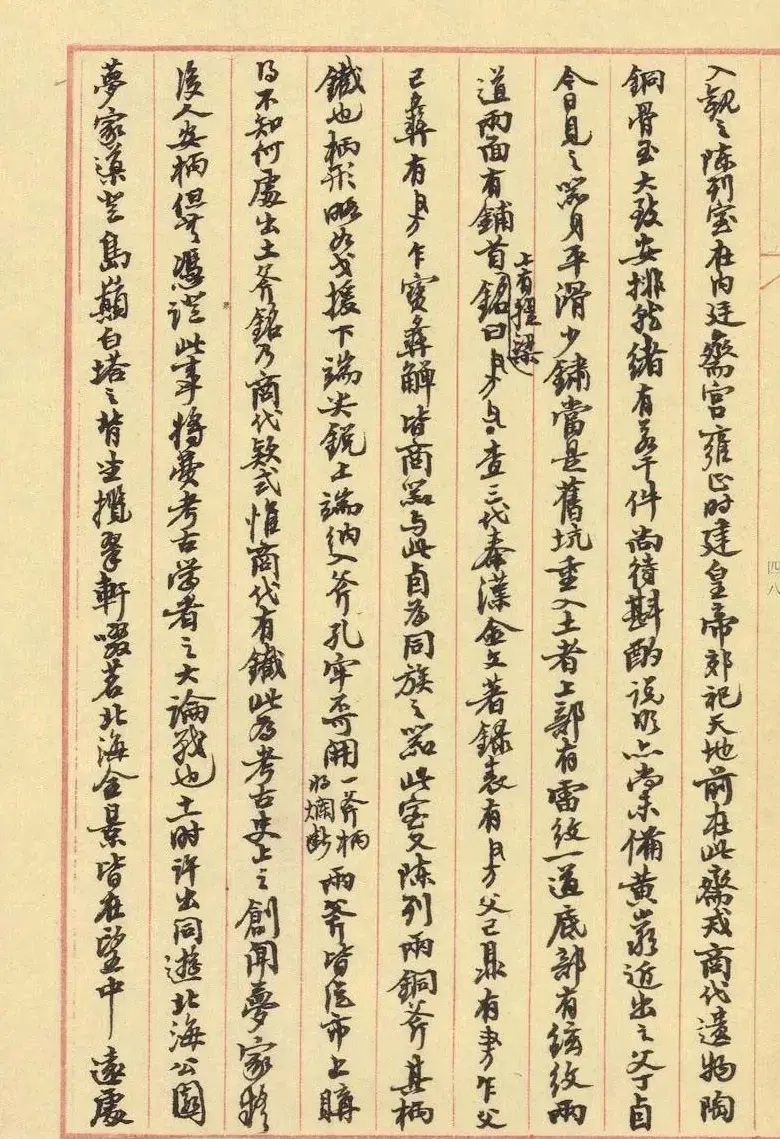 入觀之陳列室在內廷齋宮雍正時建皇帝郊祀天地前在此齋戒商代遺物陶
銅骨玉大致安排就緒有若干件尚待斟酌說明亦尚未備黃裳近出之父丁卣
今日見之器身平滑少鏽當是舊坑重入土者上部有雷紋一道底部有弦紋兩
道兩面有鋪首銘曰查三代秦漢金文著錄表有父己鼎有乍父
上有提梁
己彝有乍寶彝觶皆商器與此卣為同族之器此室又陳列兩銅斧其柄
鐵也柄形略如戈援下端尖銳上端納入斧孔牢不可開一斧柄兩斧皆從市上購
將爛斷
得不知何處出土斧銘乃商代款式惟商代有鐵此為考古史上之創聞夢家疑
後人安柄但無憑證此事將費考古學者之大論戰也十二時許出同遊北海公園
夢家導登島巔白塔之背坐攬翠軒啜茗北海全景皆在望中遠處
四八